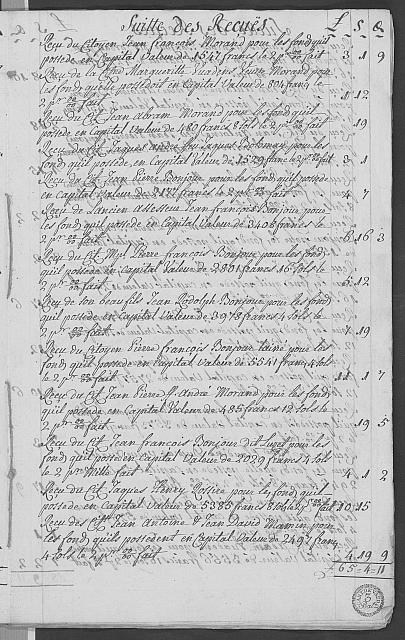 Suitte des Recues £ S D
Reçu du Citoyen Jean François Morand pour les fond quil
possede en Capital Valeur de 1547 francs le 2 pr 00/00 fait 3 1 9
Reçu de la Cite Marguerite Veuve Morand pour
les fond quelle possedoit en Capital Valeur de 804 franc
2 pr 00/00 fait 1 12
Reçu du Cit Jean Abram Morand pour les fond quil
possede en Capital Valeur de 480 francs 8 sols le 2 pr 00/00 fait 19
Reçu du Cit Jaques andre pour les
fond quil possede en Capital Valeur de 1529 franc le 2 pr 00/00 fait 3 1
Reçu du Cit Jean Pierre Bonjour pour les fond quil possede
en Capital Valeur de francs le 2 pr 00/00 fait 4 7
Reçu de Lancien Assesseur Jean françois Bonjour pour
les fond quil possede en Capital Valeur de 3406 francs le
2 pr 00/00 fait 6 16 3
Reçu du Cit Pierre françois Bonjour pour les fond
quil possede en Capital Valeur de 2801 francs 16 sols le
2 pr 00/00 fait 5 12
Reçu de son beau fils Jean Rodolph Bonjour pour les fond
quil possede en Capital Valeur de 3973 francs 4 sols le
2 pr 00/00 fait 7 19
Reçu du Citoyen Pierre françois Bonjour lainé pour les
fond quil possede en Capital Valeur de 5541 franc 4 sols
le 2 pr 00/00 fait 11 1 7
Reçu du Cit Jean Pierre f. André Morand pour les fond
quil possede en Capital Valeur de 485 francs 12 sols le
2 pr 00/00 fait 19 5
Reçu du Cit Jean francois Bonjour dit pour les
fond quil possede en Capital Valeur de 2029 francs 4 sols
le 2 pr Mille fait 4 1 2
Reçu du Cit Jaques Henry Rossire pour les fond quil
possede en Capital Valeur de 5385 francs 8 sols le 2 pr 00/00 fait 10 15
Reçu des Cit Jean Antoine & Jean David Mamin pour
les fond quils possedent en Capital Valeur de 2497 franc
4 sols le 2 pr 00/00 fait 4 19 9
65 = 4 = 11